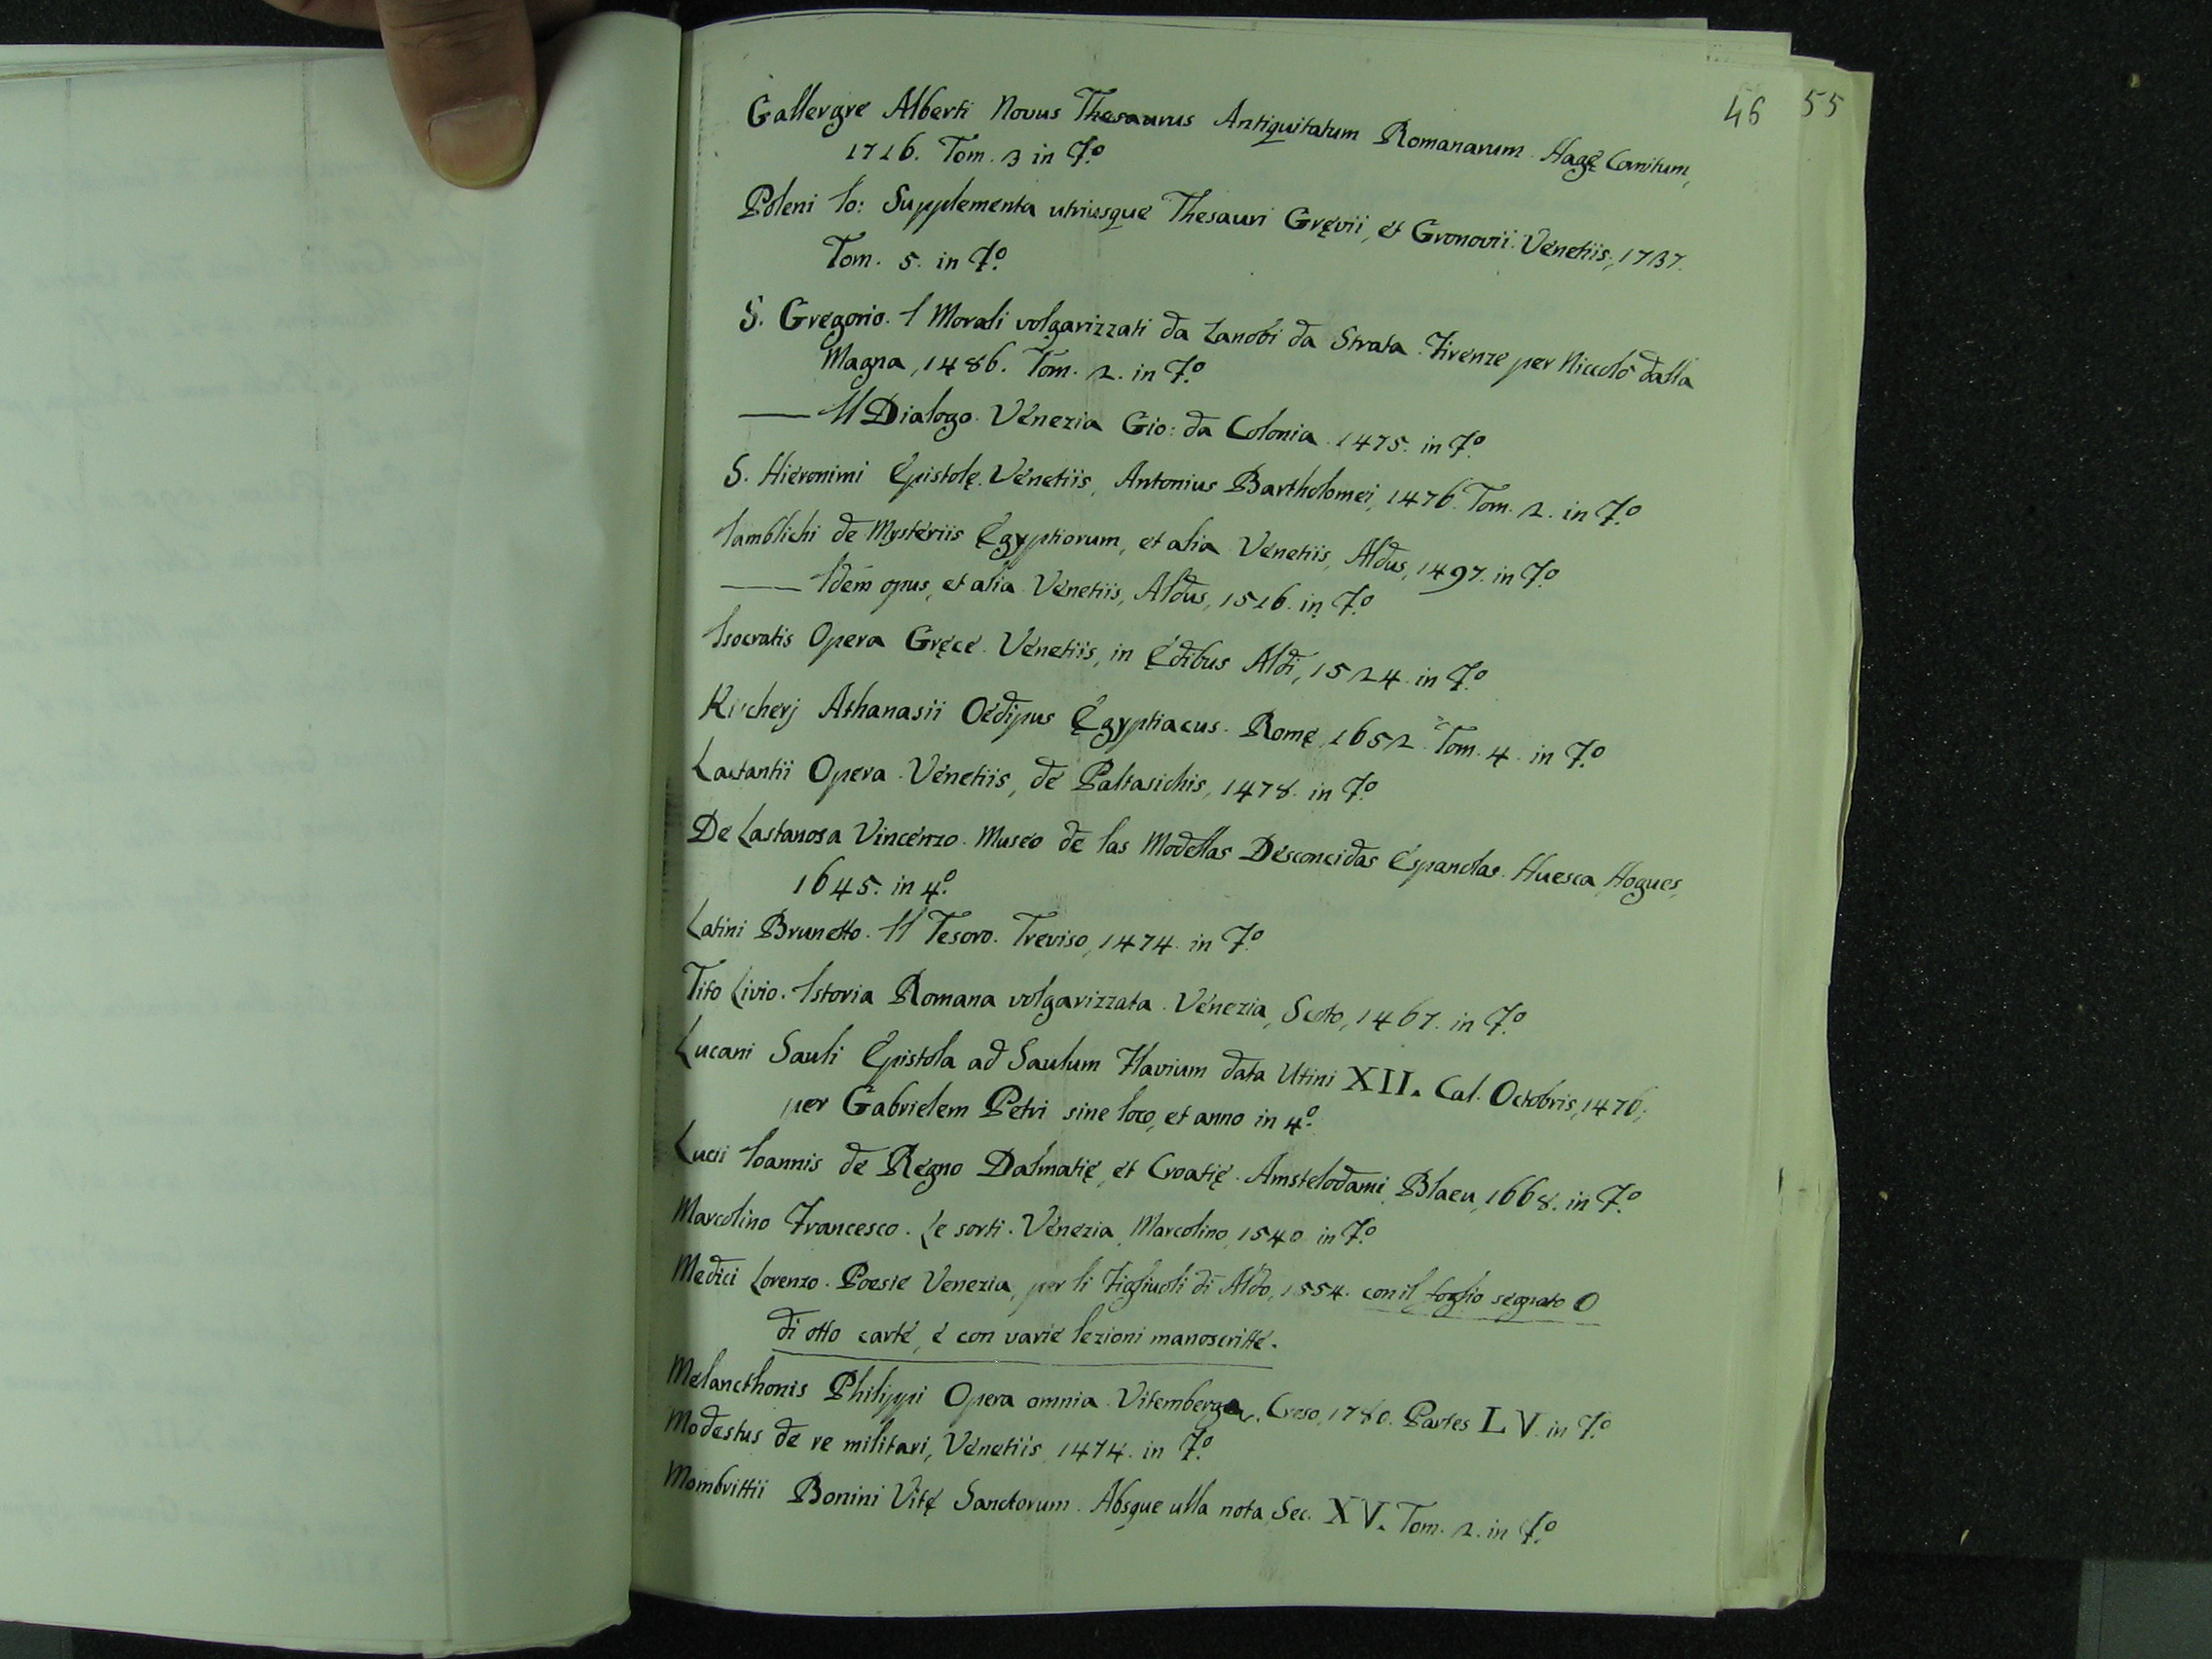 46 55
Gallergre Alberti Novus Thesaurus Antiquitatum Romanarum. Hagę Comitum,
1716. Tom. 3 in F.º
Poleni Io: Supplementa utriusque Thesauri Gręvii, et Gronovii. Venetiis, 1737.
Tom. 5. in F.º
S. Gregorio. I Morali volgarizzati da Zanobi da Strata. Firenze per Niccolò dalla
Magna, 1486. Tom. 2. in F.º
—— Il Dialogo. Venezia Gio: da Colonia. 1475. in F.º
S. Hieronimi Epistolę. Venetiis, Antonius Bartholomei, 1476. Tom. 2. in F.º
Iamblichi de Mysteriis Ęgyptiorum, et alia. Venetiis, Aldus, 1497. in F.º
—— Idem opus, et alia. Venetiis, Aldus, 1516. in F.º
Isocratis Opera Gręce. Venetiis, in Ędibus Aldi, 1524. in F.º
Kircherj Athanasii Oedipus Ęgyptiacus. Romę, 1652. Tom. 4. in F.º
Lactantii Opera. Venetiis, de Paltasichis, 1478. in F.º
De Lastanosa Vincenzo. Museo de las Medellas Desconcidas Espanolas. Huesca, Hogues,
1645. in 4.º
Latini Brunetto. Il Tesoro. Treviso, 1474. in F.º
Tito Livio. Istoria Romana volgarizzata. Venezia, Scoto, 1467. in F.º
Lucani Sauli Epistola ad Saulum Flavium data Utini XII. Cal. Octobris, 1476,
per Gabrielem Petri sine loco, et anno in 4.º
Lucii Ioannis de Regno Dalmatię, et Croatię. Amstelodami, Blaeu, 1668. in F.º
Marcolino Francesco. Le sorti. Venezia, Marcolino, 1540. in F.º
Medici Lorenzo. Poesie Venezia, per li Figliuoli di Aldo, 1554. con il foglio segnato O
di otto carte, e con varie lezioni manoscritte.
Melancthonis Philippi Opera omnia. Vitemberga, Creso, 1780. Partes LV. in F.º
Modestus de re militari, Venetiis, 1474. in F.º
Mombrittii Bonini Vitę Sanctorum. Absque ulla nota, Sec. XV. Tom. 2. in F.º